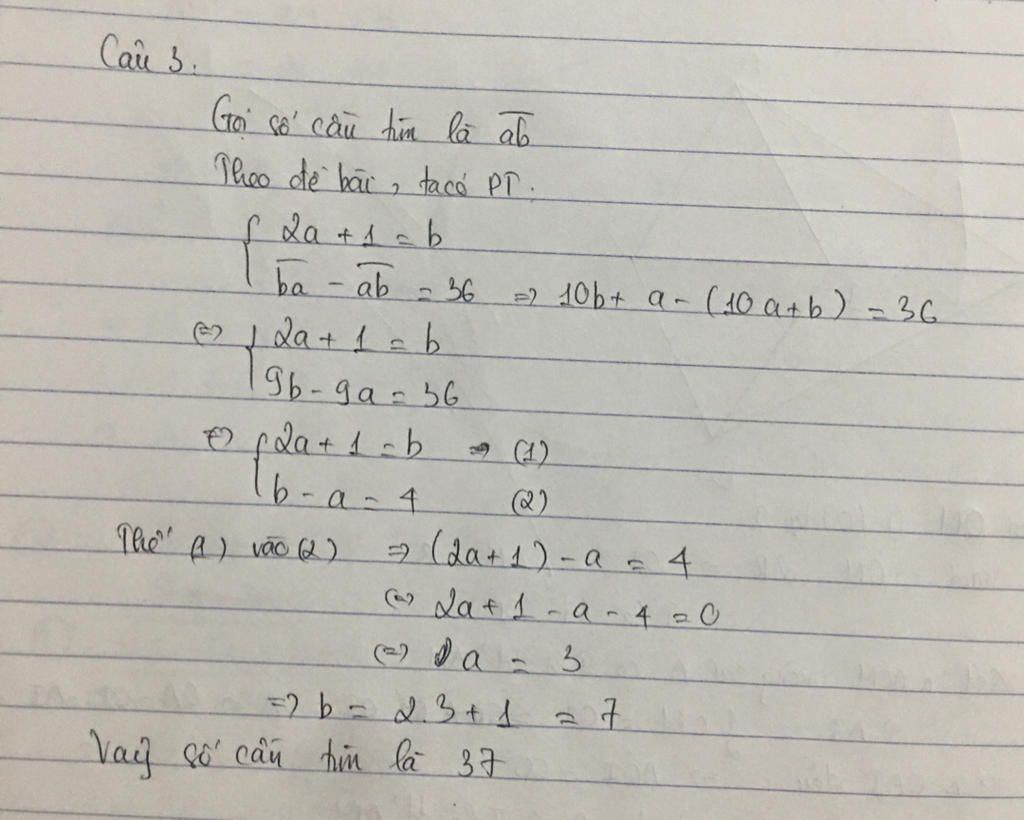 Câu 3.
Gọi số cần tìm là a̅b̅
Theo đề bài, ta có PT:
{ 2a + 1 = b
b̅a̅ - a̅b̅ = 36 => 10b + a - (10a + b) = 36
<=> { 2a + 1 = b
9b - 9a = 36
<=> { 2a + 1 = b => (1)
b - a = 4 (2)
Thế (1) vào (2) => (2a + 1) - a = 4
<=> 2a + 1 - a - 4 = 0
<=> a = 3
=> b = 2.3 + 1 = 7
Vậy số cần tìm là 37